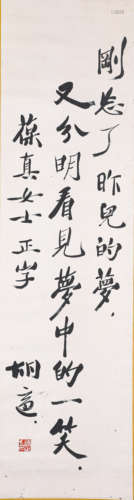 剛忘了昨兒的夢，
又分明看見夢中的一笑．
葆真女士正字
胡適．